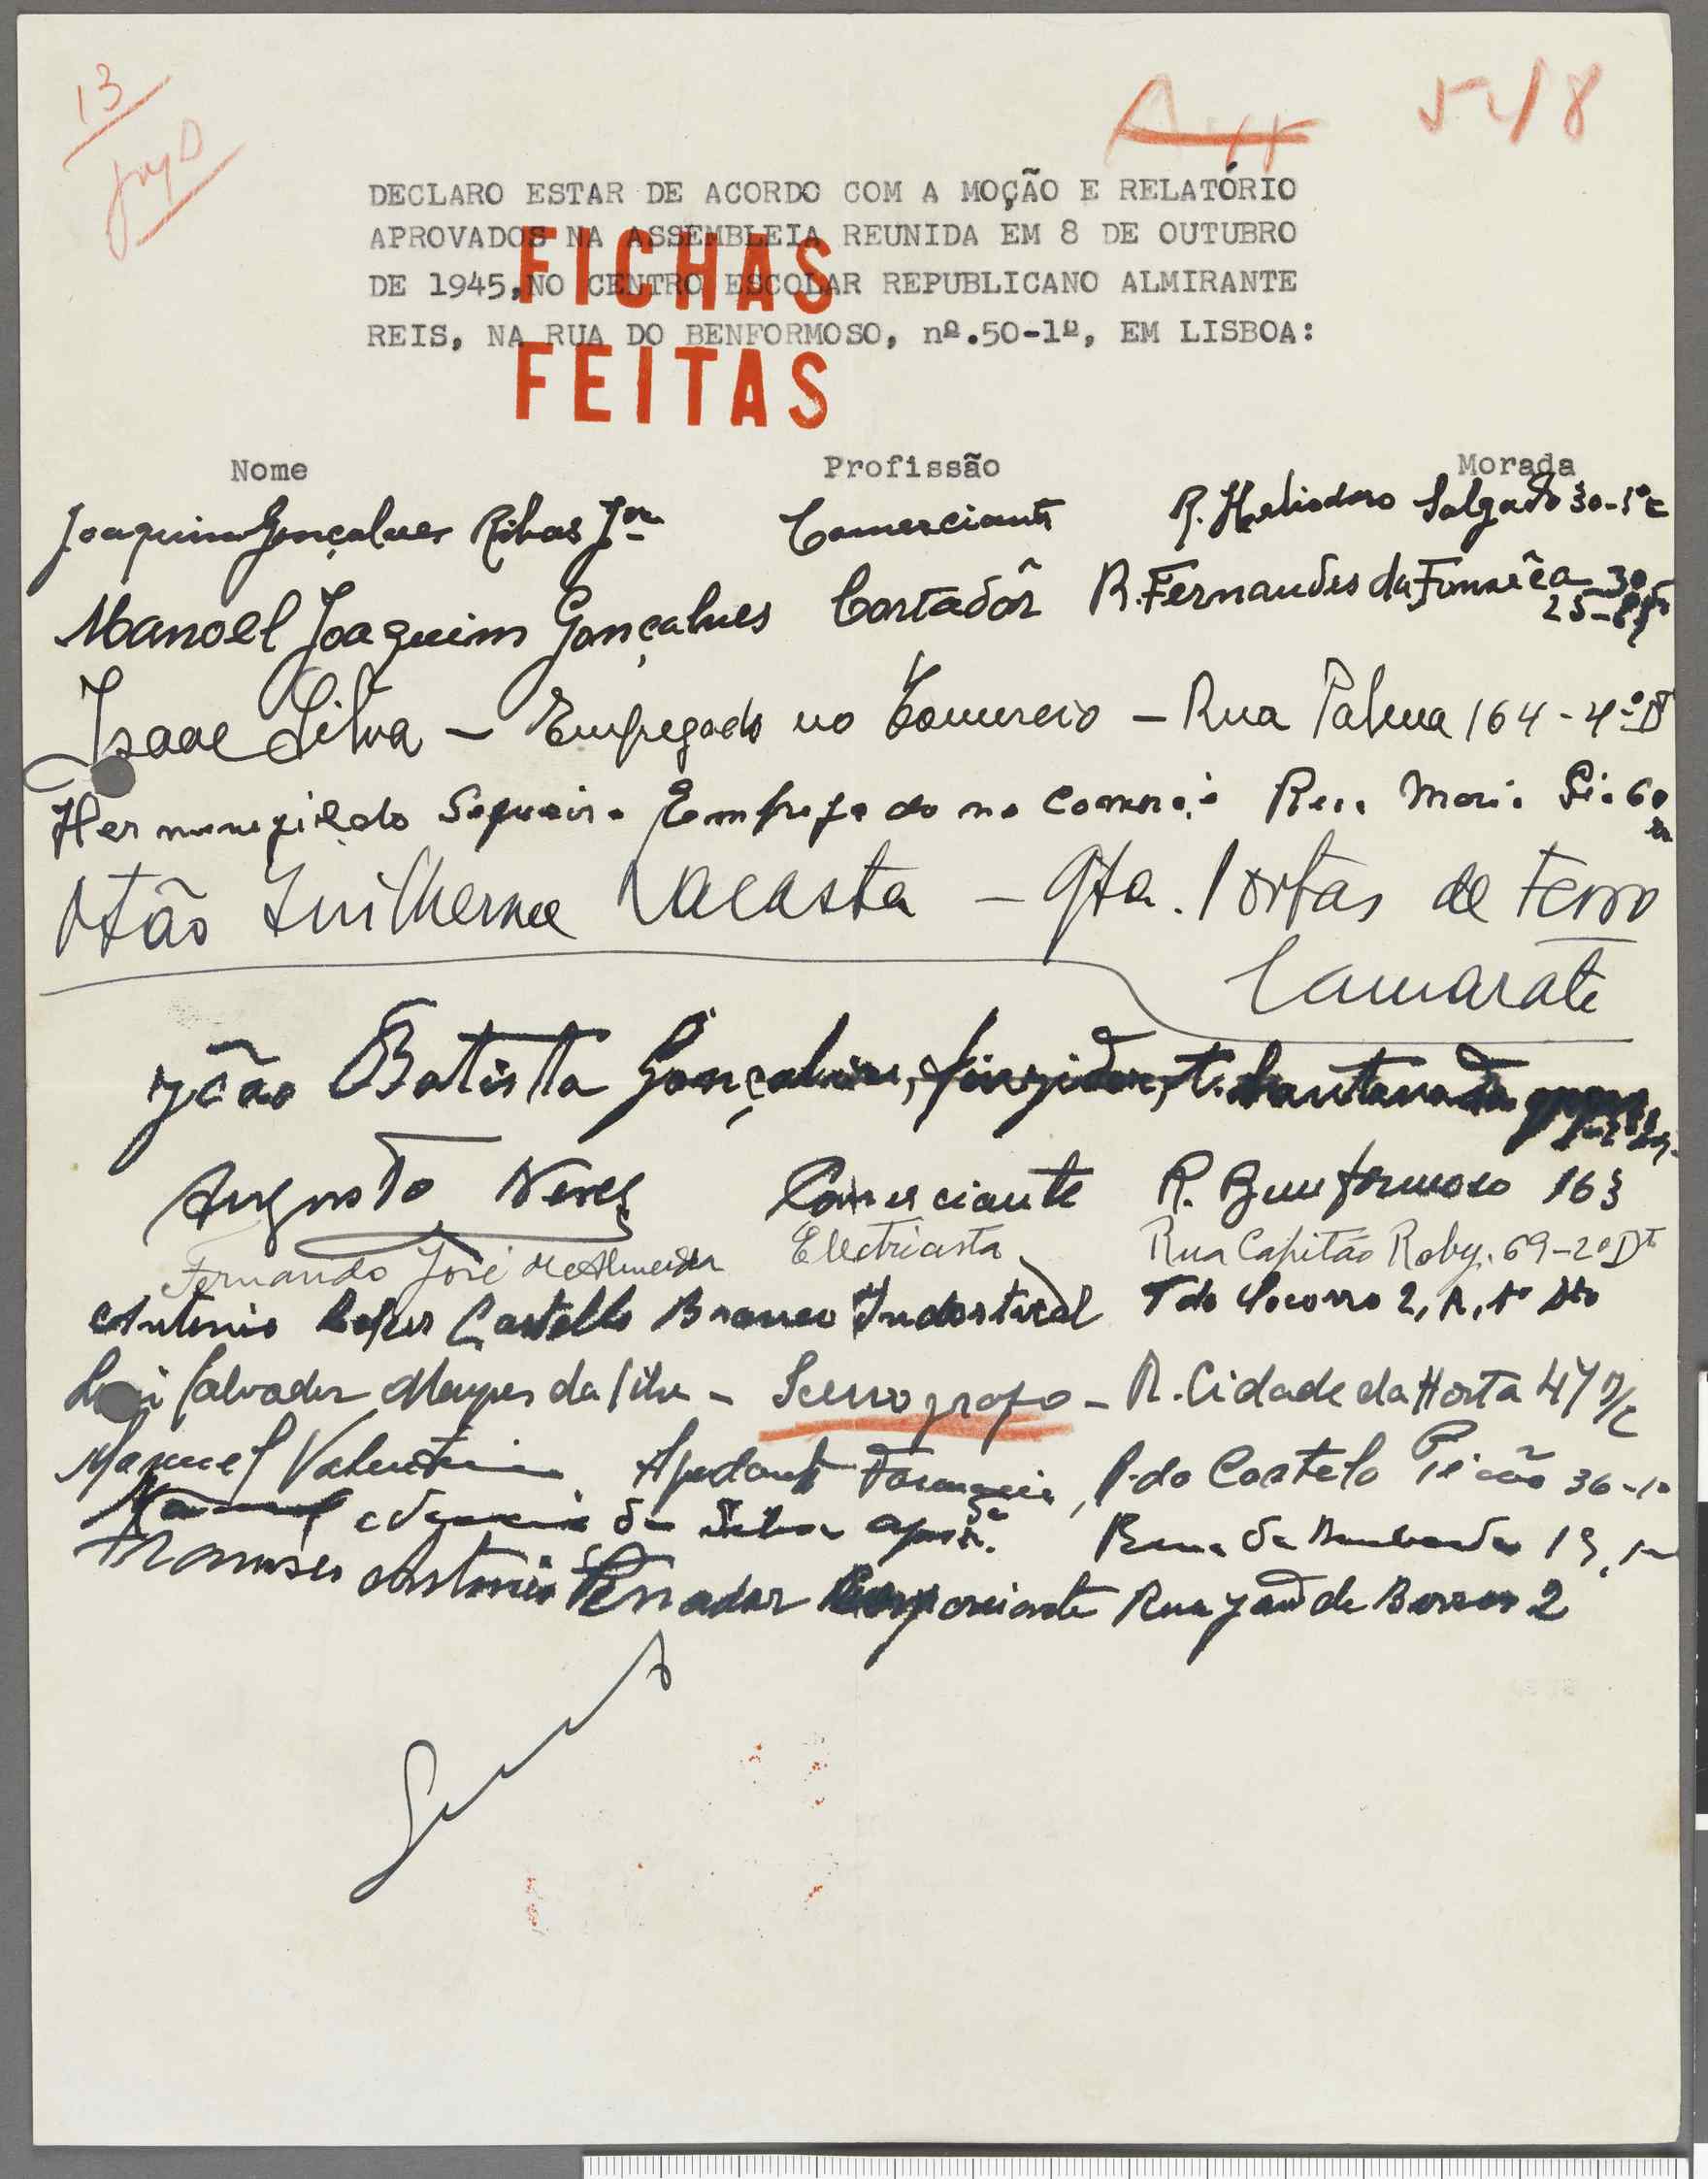 13
5218
DECLARO ESTAR DE ACORDO COM A MOÇÃO E RELATÓRIO
APROVADOS NA ASSEMBLEIA REUNIDA EM 8 DE OUTUBRO
DE 1945, NO CENTRO ESCOLAR REPUBLICANO ALMIRANTE
REIS, NA RUA DO BENFORMOSO, nº.50-1º, EM LISBOA:
FICHAS
FEITAS
Nome Profissão Morada
Joaquim Gonçalves Ribas Jor Comerciante R. Heliodoro Salgado 30-
Manoel Joaquim Gonçalves Cortadôr R. Fernandes da Fonsêca
Isaac Silva - Empregado no Comercio - Rua Palma 164-4º Dt
Hermenegildo Empregado no Comercio Rua Maria Pia 60
Otão Guilherme Lacasta - Qta. Portas de Ferro
Camarate
João Batista Gonçalves, fingidor,
Augusto Neves Comerciante R. Bemformoso 163
Fernando José de Almeida Electricista Rua Capitão Roby, 69-2º Dt
Antonio Lopes Castello Branco Industrial T do Socorro 2, A, 1º Dto
Salvador Marques da Silva - Scenografo - R. Cidade da Horta 47 r/c
Manuel Valentim Ajudante Farmacia, R. do Castelo Picão 36-1º
da Silva Rua da
Antonio Comerciante Rua João de Barros 2